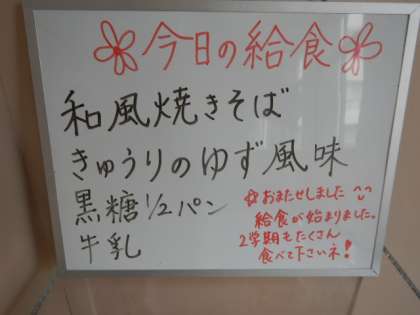 今日の給食
和風焼きそば
きゅうりのゆず風味
黒糖1/2パン
牛乳
おまたせしました
給食が始まりました。
2学期もたくさん
食べて下さいネ!